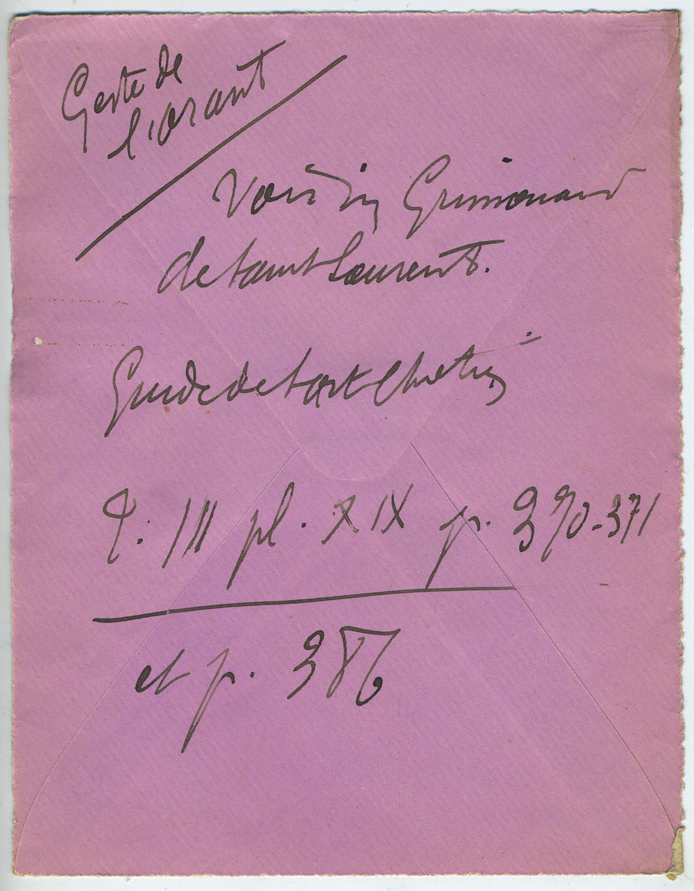 Geste de
l'orant
Voir in Grimouard
de Saint Laurent.
Guide de l'art Chrétien
T. III pl. XIX p. 370-371
et p. 386